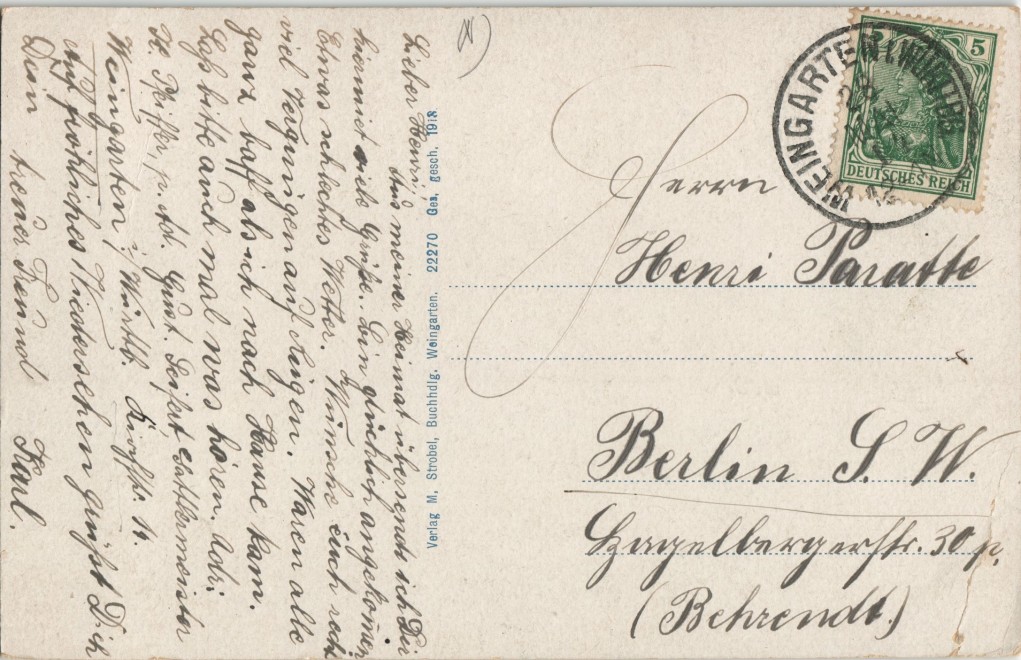 Lieber Henri,
Aus meiner Heimat übersende ich Dir
hiermit viele Grüße. bin glücklich angekomen
Etwas schlechtes Wetter. Wünsche Euch recht
viel Vergnügen auf Augen. Waren alle
ganz baff als ich nach Hause kam.
Laß bitte auch mal was hören. Adr:
K. Pfeiffer, Sattlermeister
Weingarten i/Württb. Kirchstr. 14.
Auf fröhliches Wiedersehen grüßt Dich
Dein treuer Freund Karl.
Verlag M. Strobel, Buchhdlg. Weingarten. 22270 Ges. gesch. 1913
WEINGARTEN (WÜRTTEMB
5
DEUTSCHES REICH
Herrn
Henri Paratte
Berlin S. W.
Hagelbergerstr. 30 p.
(Behrendt.)